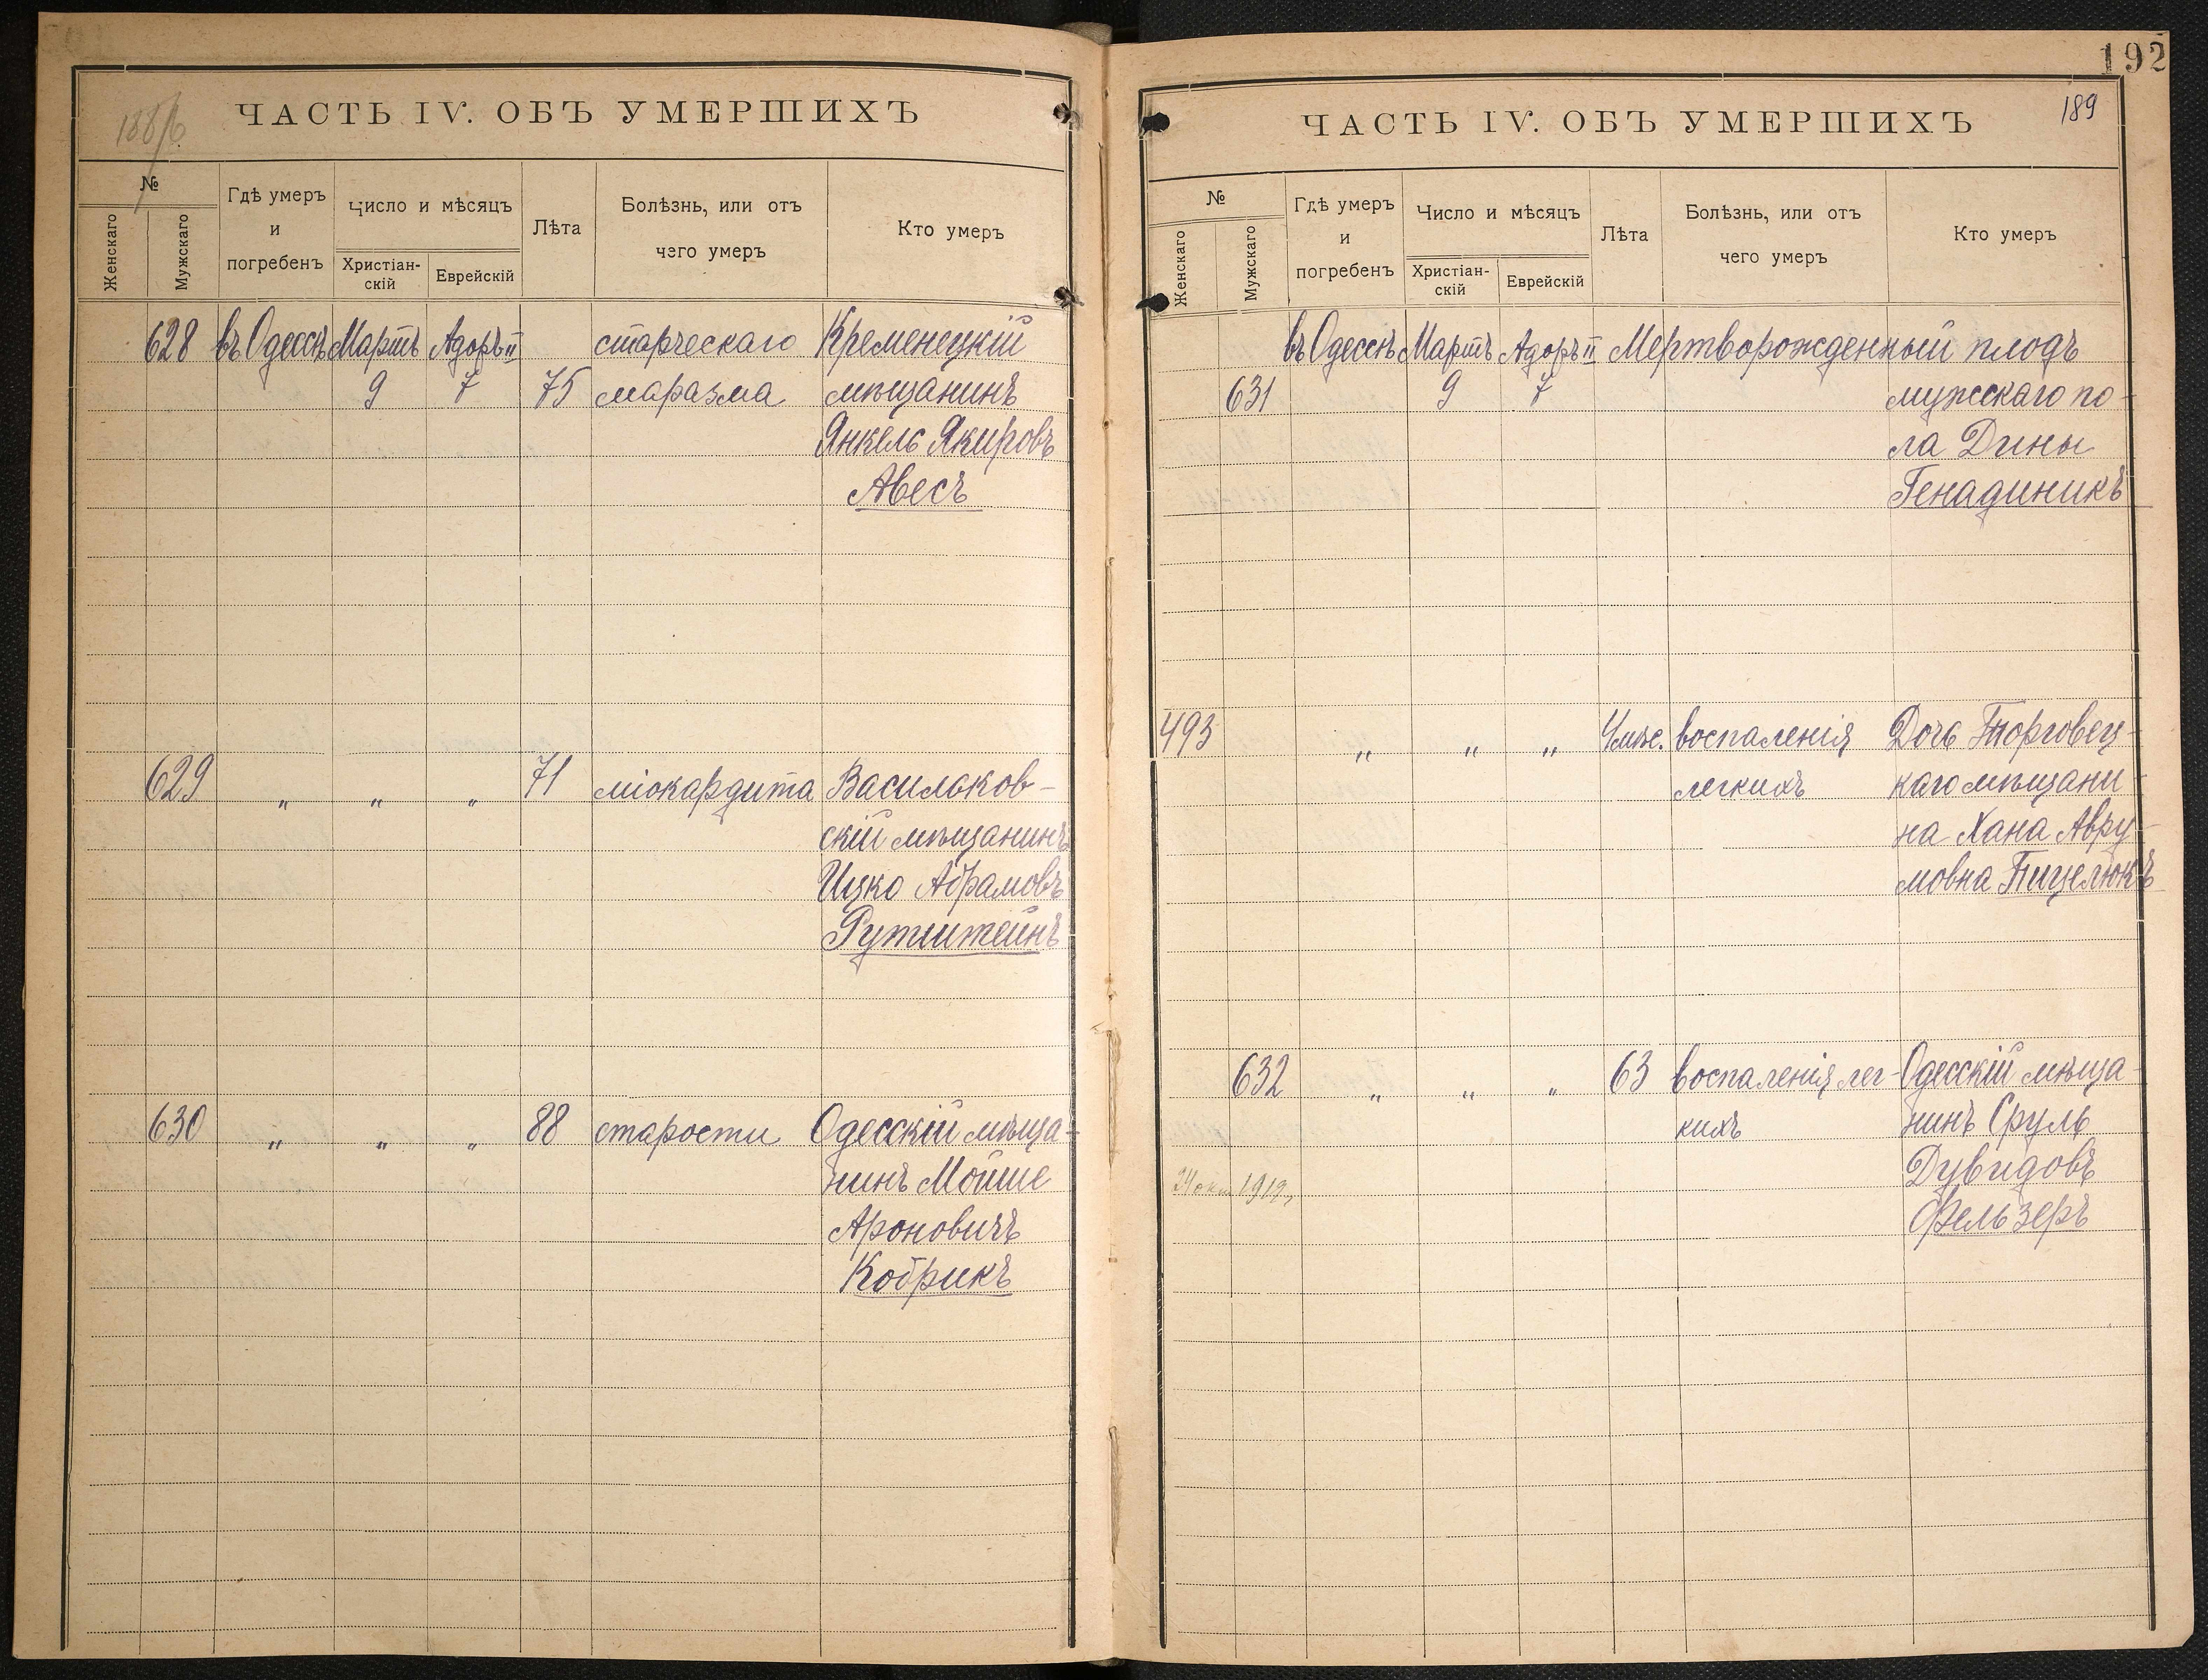 ЧАСТЬ IV. ОБЪ УМЕРШИХЪ
№
Женскаго
Мужскаго
Гдѣ умеръ
и
погребенъ
Число и мѣсяцъ
Христіан-
скій
Еврейскій
Лѣта
Болѣзнь, или отъ
чего умеръ
Кто умеръ
628 въ Одессѣ Мартъ Адоръ II старческаго Кременецкій
9 7 75 маразма мѣщанинъ
Янкель Якировъ
Авесъ
629 „ „ „ 71 міокардита Васильков-
скій мѣщанинъ
Ицко Абрамовъ
Рутштейнъ
630 „ „ „ 88 старости Одесскій мѣща-
нинъ Мойше
Ароновичъ
Кобрикъ
192
189
ЧАСТЬ IV. ОБЪ УМЕРШИХЪ
№
Женскаго
Мужскаго
Гдѣ умеръ
и
погребенъ
Число и мѣсяцъ
Христіан-
скій
Еврейскій
Лѣта
Болѣзнь, или отъ
чего умеръ
Кто умеръ
въ Одессѣ Мартъ Адоръ II Мертворожденный плодъ
631 9 7 мужскаго по-
ла Дины
Генадиникъ
493 „ „ „ 4 мѣс. воспаленія Дочь Торговец-
легкихъ каго мѣщани-
на Хана Авру-
мовна Пицелюкъ
632 „ „ „ 63 воспаленія лег- Одесскій мѣща-
кихъ нинъ Сруль
Дувидовъ
1919
Фельзеръ